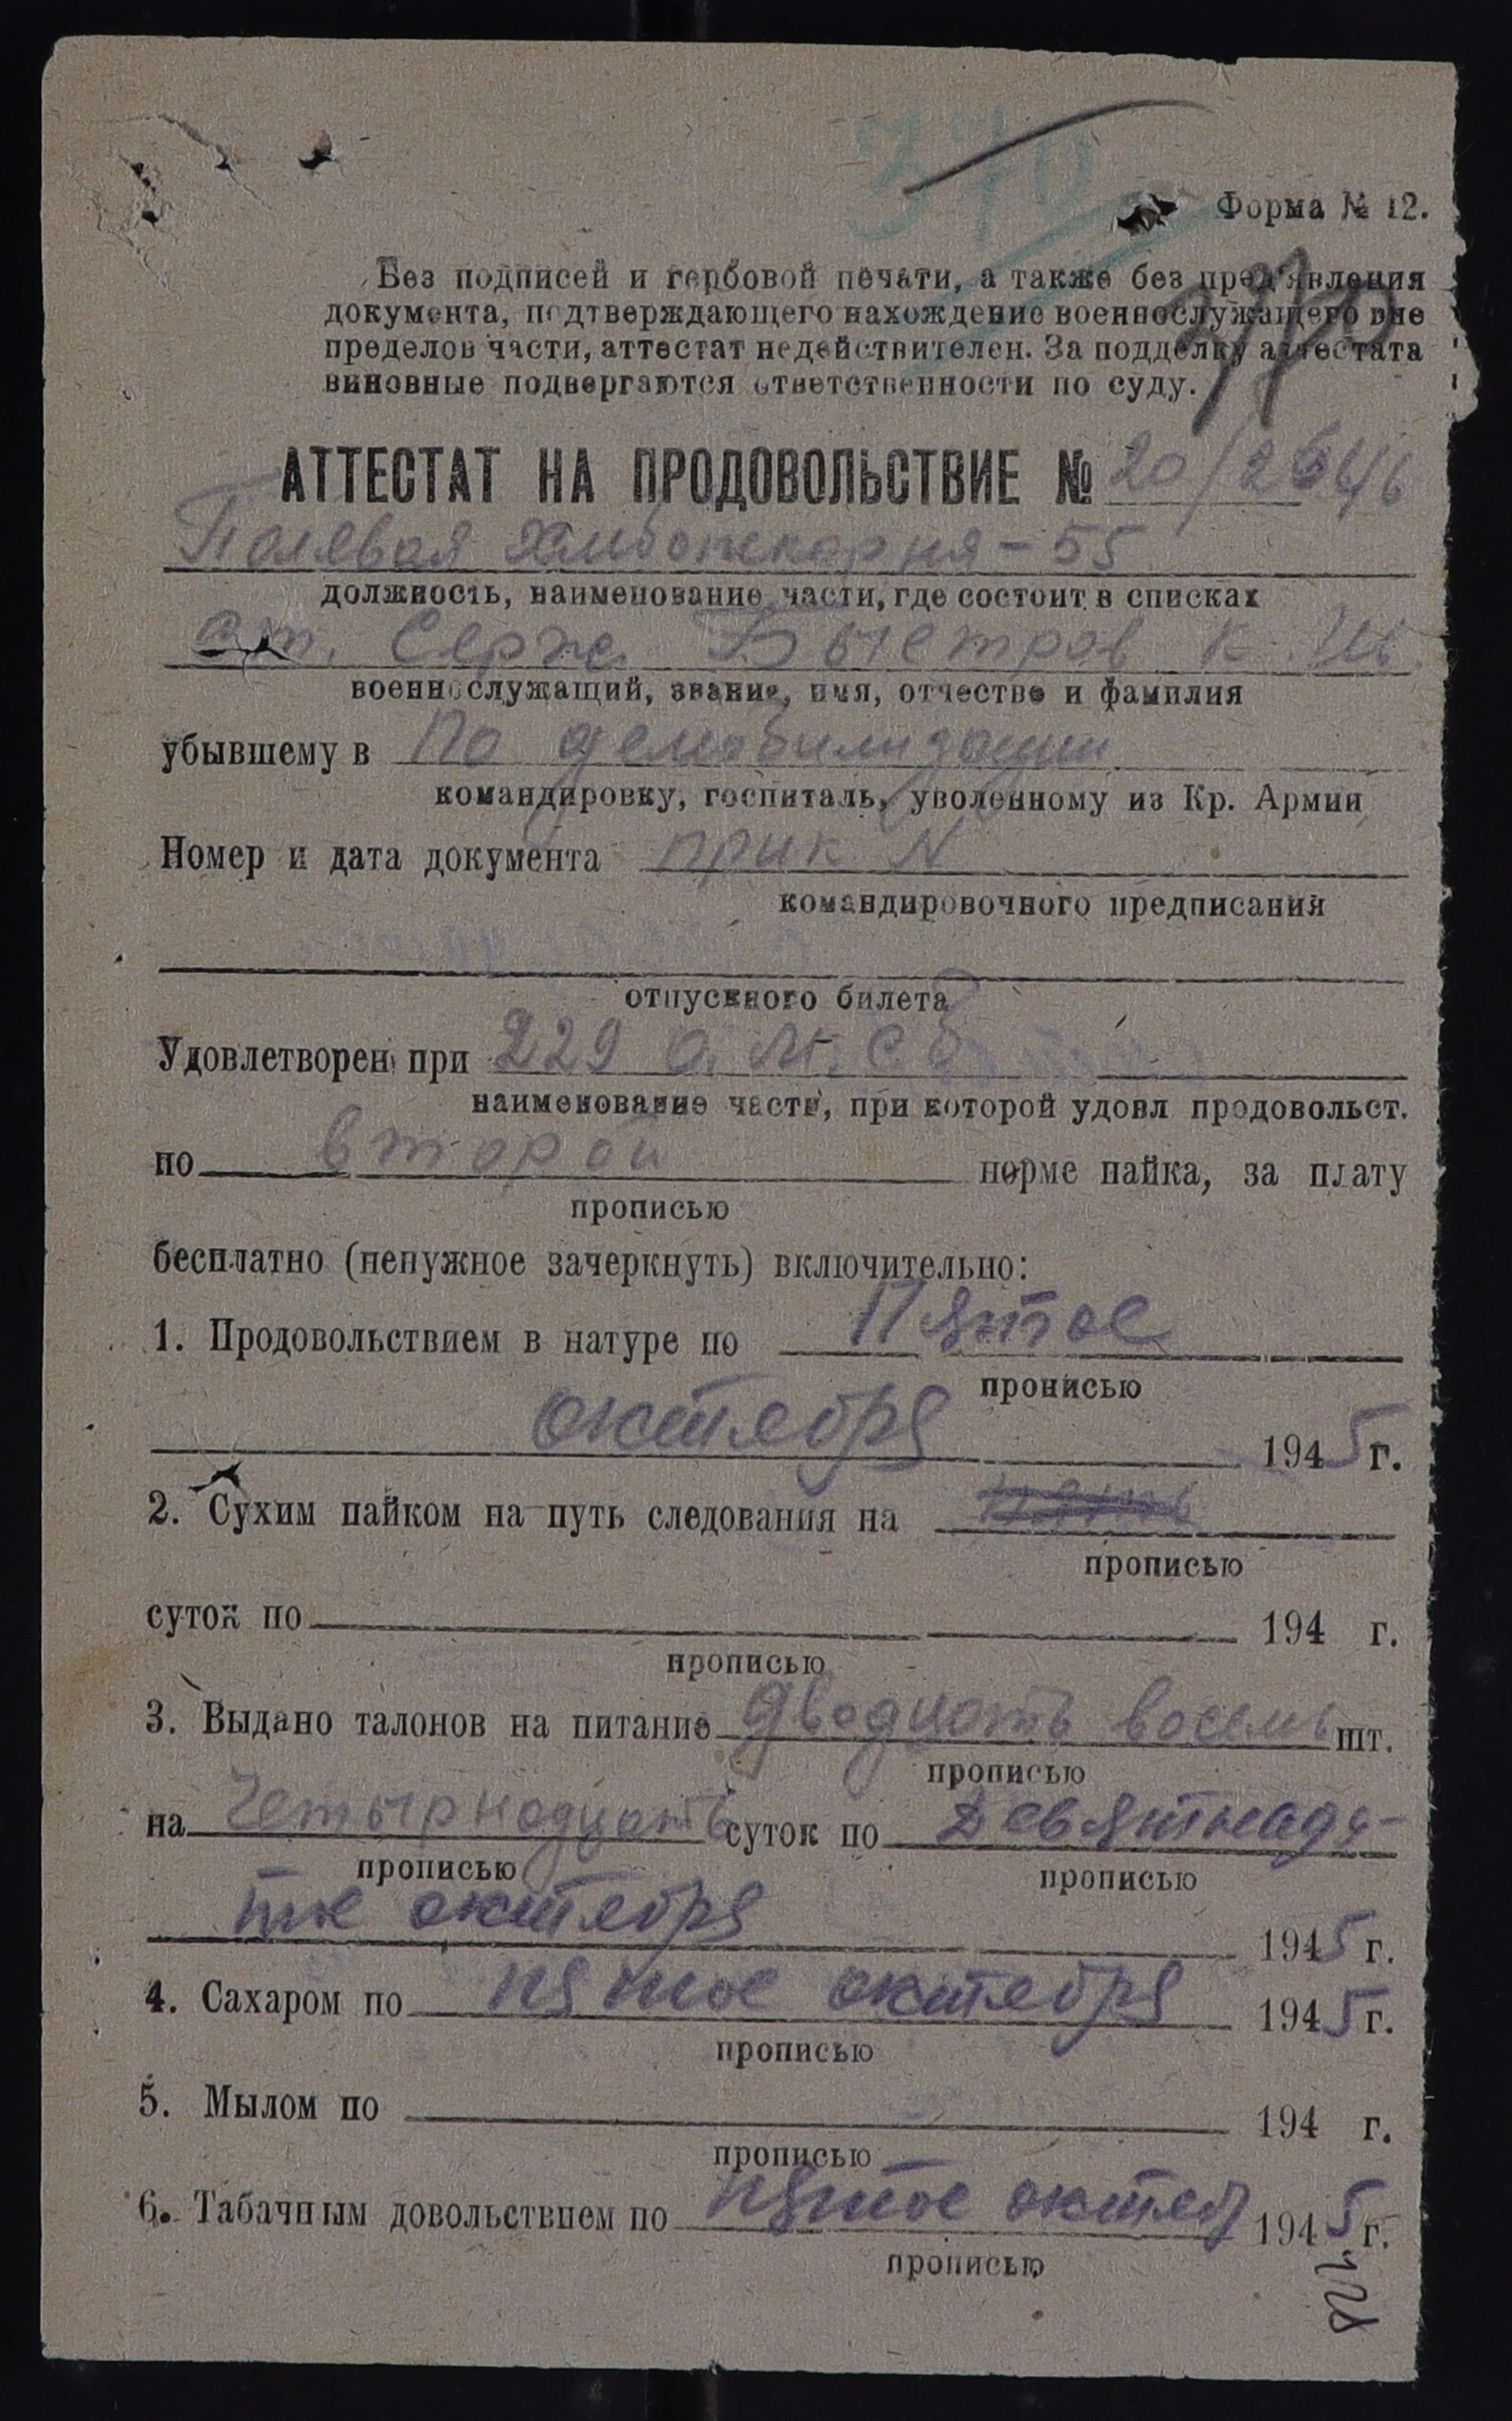 370
Форма № 12.
Без подписей и гербовой печати, а также без пред'явления
документа, подтверждающего нахождение военнослужащего вне
пределов части, аттестат недействителен. За подделку аттестата
виновные подвергаются ответственности по суду.
АТТЕСТАТ НА ПРОДОВОЛЬСТВИЕ № 20/
Полевая хлебопекарня - 55
должность, наименование части, где состоит в списках
ст. Серж. Быстров К.
военнослужащий, звание, имя, отчество и фамилия
убывшему в по демобилизации
командировку, госпиталь, уволенному из Кр. Армии
Номер и дата документа прик N
командировочного предписания
отпускного билета
Удовлетворен при 229
наименование части, при которой удовл продовольст.
по второй норме пайка, за плату
прописью
бесплатно (ненужное зачеркнуть) включительно:
1. Продовольствием в натуре по Пятое
прописью
октября 1945 г.
2. Сухим пайком на путь следования на
прописью
суток по 194 г.
прописью
3. Выдано талонов на питание двадцать восемь шт.
прописью
на Четырнадцать суток по Девятнадц-
прописью прописью
тое октября 1945 г.
4. Сахаром по пятое октября 1945 г.
прописью
5. Мылом по 194 г.
прописью
6. Табачным довольствием по пятое октяб 1945 г.
прописью